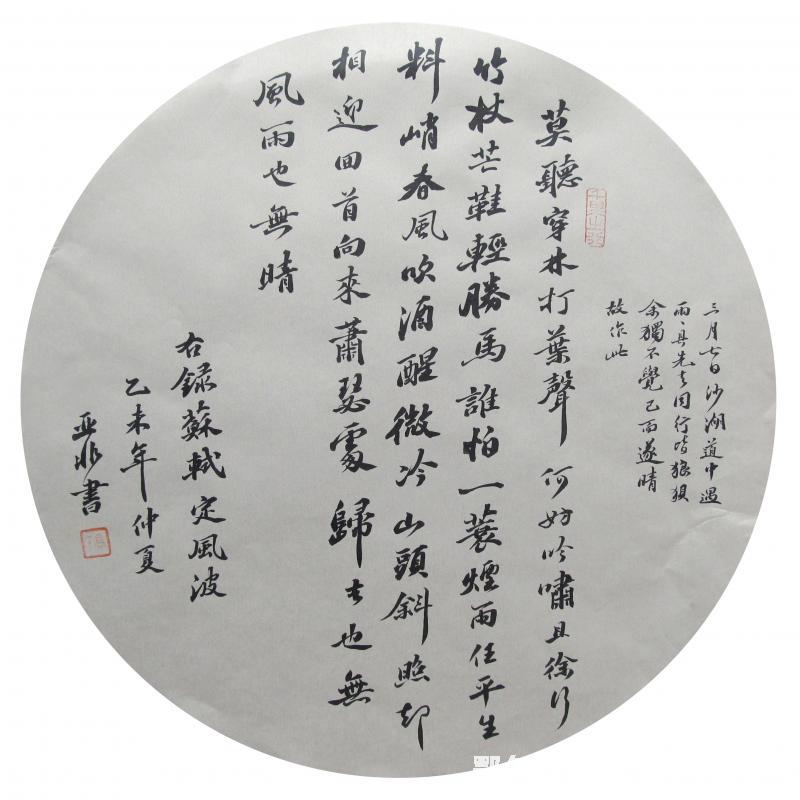 三月七日沙湖道中遇
雨〻具先去同行皆狼狽
余獨不覺已而遂晴
故作此
莫聽穿林打葉聲何妨吟嘯且徐行
竹杖芒鞋輕勝馬誰怕一蓑煙雨任平生
料峭春風吹酒醒微冷山頭斜照却
相迎回首向來蕭瑟處歸去也無
風雨也無晴
右録蘇軾定風波
乙未年仲夏
亚非書